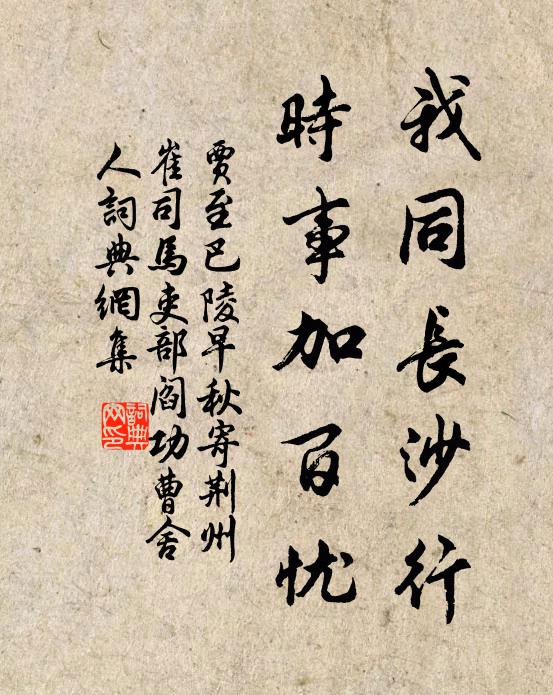 我同長沙行
時事加百忧
賈至巴陵早秋寄荆州
崔司馬吏部閻功曹舍
人詞典網集
詞典网印